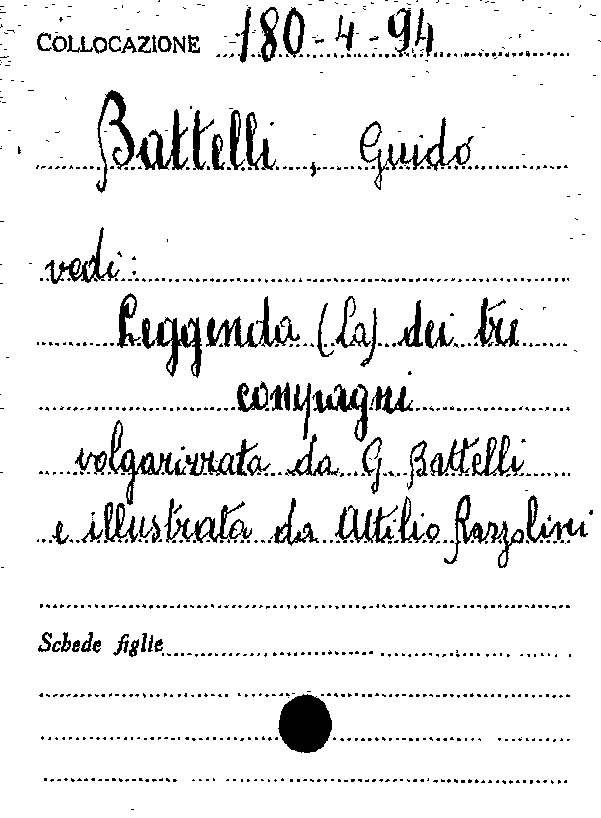 COLLOCAZIONE 180-4-94
Battelli, Guido
vedi:
Leggenda (La) dei tre
compagni
volgarizzata da G. Battelli
e illustrata da Attilio Razzolini
Schede figlie